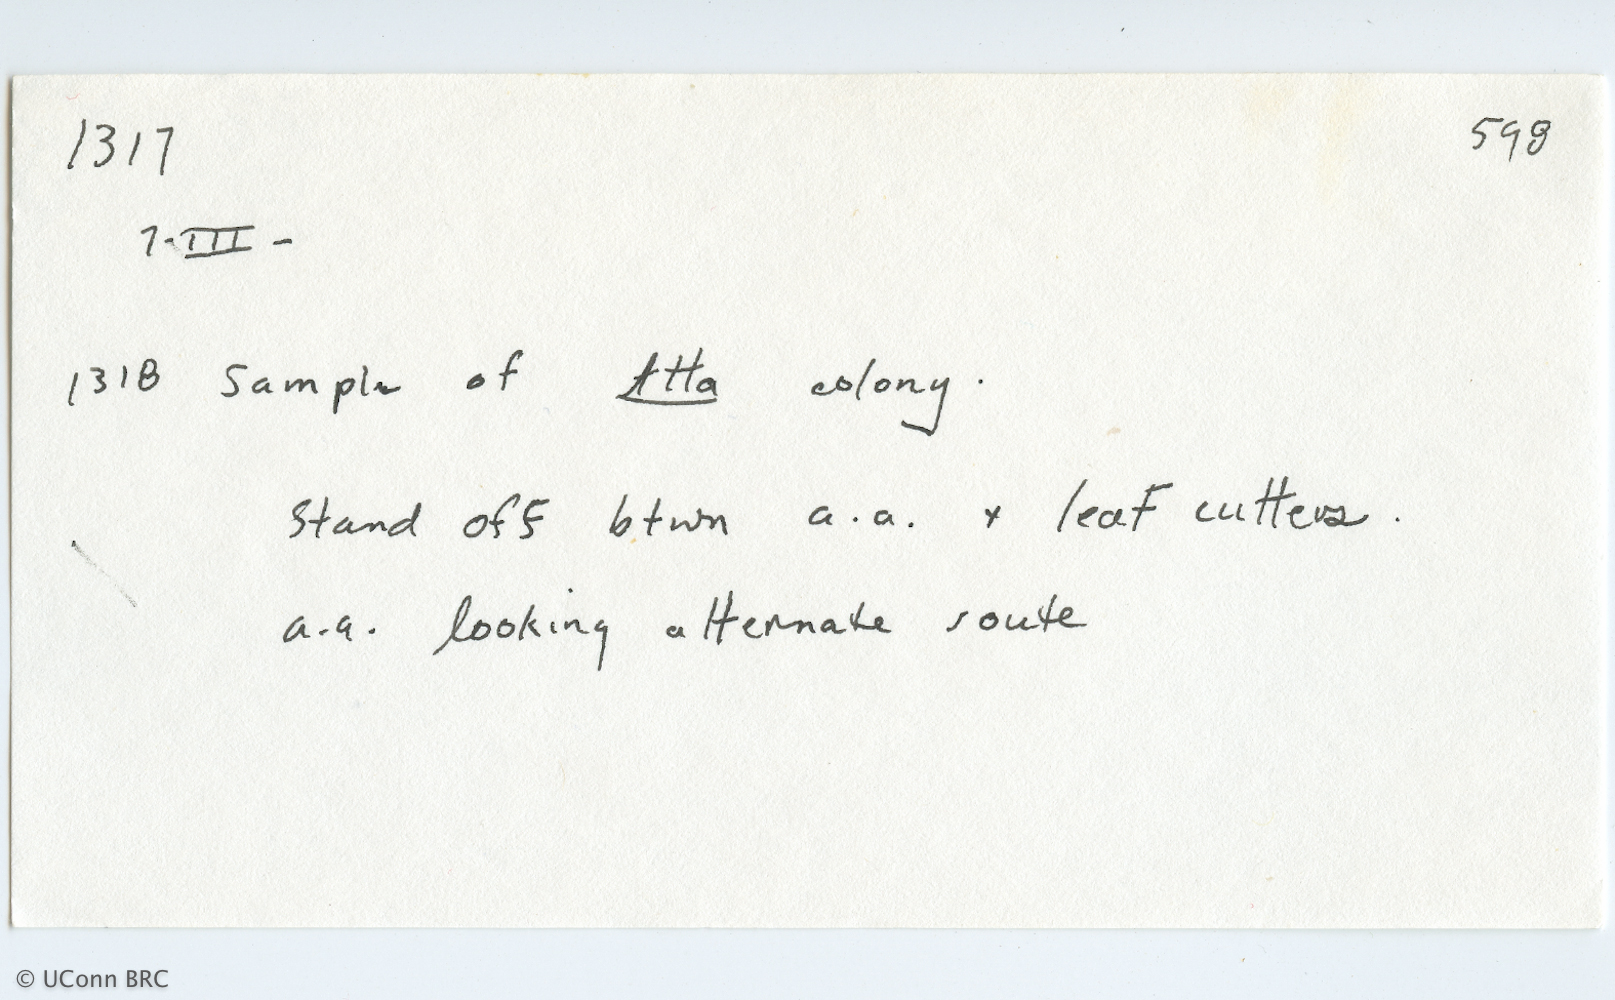 1317 598
7-III-
1318 Sample of Atta colony.
Stand off btwn a.a. + leaf cutters.
a.a. looking alternate route
© UConn BRC